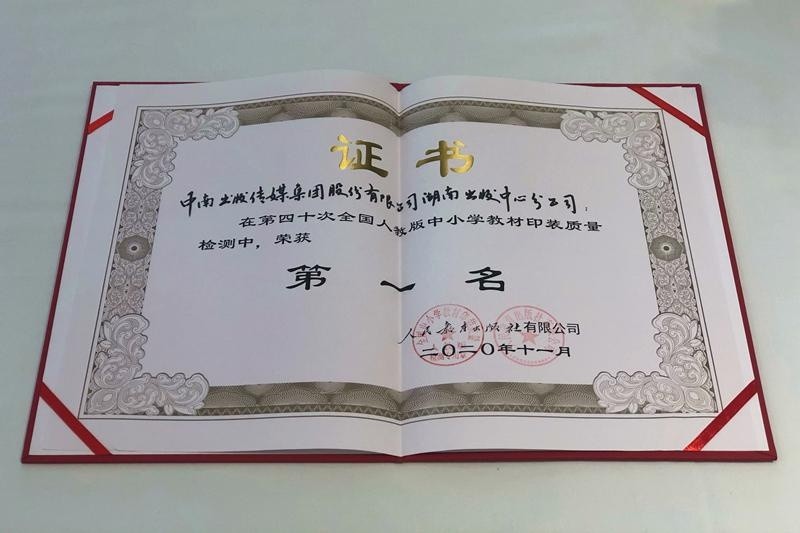 证书
中南出版传媒集团股份有限公司湖南出版中心分公司：
在第四十次全国人教版中小学教材印装质量
检测中，荣获
第一名
人民教育出版社有限公司
二〇二〇年十一月